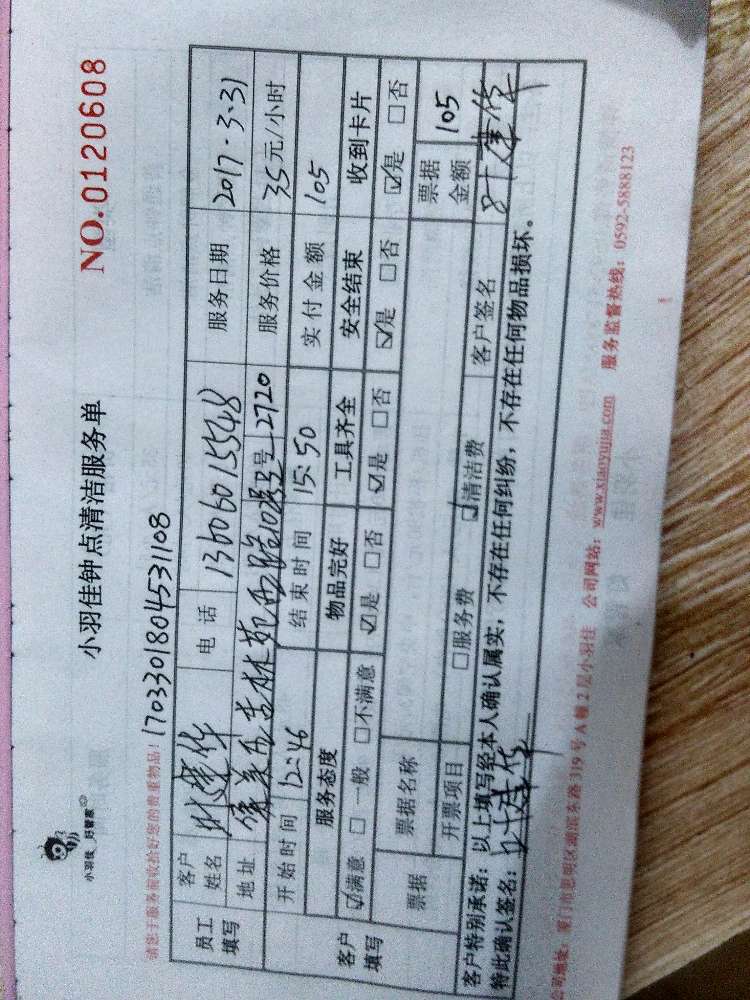 小羽佳 好管家
小羽佳钟点清洁服务单
NO.0120608
请您于服务前收拾好您的贵重物品! 1703301804531108
员工填写 客户姓名 叶建华 电话 13606015548 服务日期 2017.3.31
地址 2720 服务价格 35元/小时
开始时间 12:46 结束时间 15:50 实付金额 105
客户填写 服务态度 物品完好 工具齐全 安全结束 收到卡片
☑满意 □一般 □不满意 ☑是 □否 ☑是 □否 ☑是 □否 ☑是 □否
票据 票据名称 票据金额 105
开票项目 □服务费 ☑清洁费 客户签名 叶建华
客户特别承诺：以上填写经本人确认属实，不存在任何纠纷，不存在任何物品损坏。
特此确认签名：叶建华
公司地址：厦门市思明区湖滨东路319号A幢2层小羽佳 公司网站：www.xiaoyujia.com 服务监督热线：0592-5888123